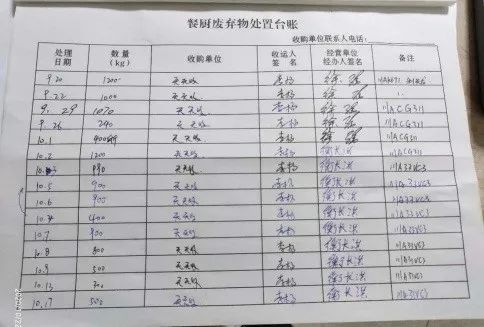 餐厨废弃物处置台账
收购单位联系人电话:
处理日期 数量(kg) 收购单位 收运人签名 经营单位经办人签名 备注
9.20 1200 天天收 李杨 徐强
9.22 1000 天天收 李杨 徐强
9.29 1070 天天收 李杨 徐强 川ACG311
9.26 240 天天收 李杨 徐强 川ACG311
10.1 天天收 李杨 徐强 川ACG311
10.2 1200 天天收 李杨 衡长洪 川ACG311
天天收 李杨 衡长洪 川A33VC3
10.5 900 天天收 李杨 衡长洪 川A33VC3
10.6 900 天天收 李杨 衡长洪 川A33VC3
400 天天收 李杨 衡长洪 川A33VC3
10.7 天天收 李杨 衡长洪 川A33VC3
10.8 800 天天收 李杨 衡长洪 川A33VC3
10.9 500 天天收 李杨 衡长洪
10.13 天天收 李杨 衡长洪
10.17 500 天天收 李杨 衡长洪